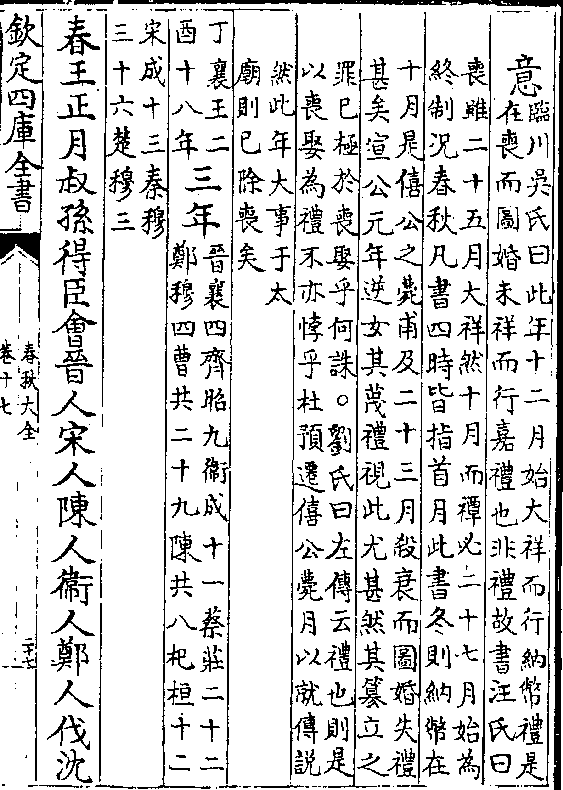 意臨川吳氏曰此年十二月始大祥而行納幣禮是
在喪而圖婚未祥而行嘉禮也非禮故書汪氏曰
喪雖二十五月大祥然十月而禫必二十七月始為
終制況春秋凡書四時皆指首月此書冬則納幣在
十月是僖公之薨甫及二十三月殺衰而圖婚失禮
甚矣宣公元年逆女其蔑禮視此尤甚然其簒立之
罪已極於喪娶乎何誅○劉氏曰左傳云禮也則是
以喪娶為禮不亦悖乎杜預遷僖公薨月以就傳說
然此年大事于太
廟則已除喪矣
丁襄王二
酉十八年
三年
晉襄四齊昭九衞成十一蔡莊二十二
鄭穆四曹共二十九陳共八杞桓十二
宋成十三秦穆
三十六楚穆三
春王正月叔孫得臣會晉人宋人陳人衞人鄭人伐沈
欽定四庫全書
春秋大全
卷十七